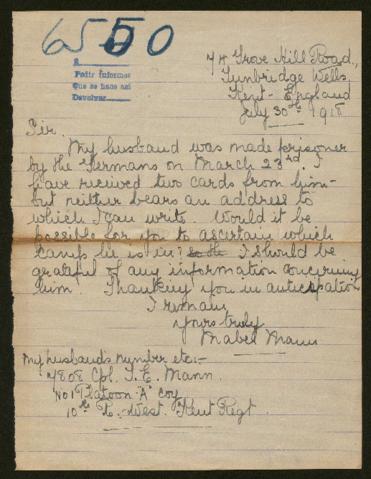 6550
A
Pedir informes
Que se hace así
Devolver
74 Grove Hill Road,
Tunbridge Wells,
Kent - England
July 30th 1918
Sir.
My husband was made prisoner
by the Germans on March 23rd I
have received two cards from him -
but neither bears an address to
which I can write. Would it be
possible for you to ascertain which
camp he is in? I should be
grateful of any information concerning
him. Thanking you in anticipation
I remain
Yours truly
Mabel Mann
My husband's number etc:-
7808 Cpl. T. E. Mann.
No 1 Platoon "A" Coy
10th R. West. Kent Regt.